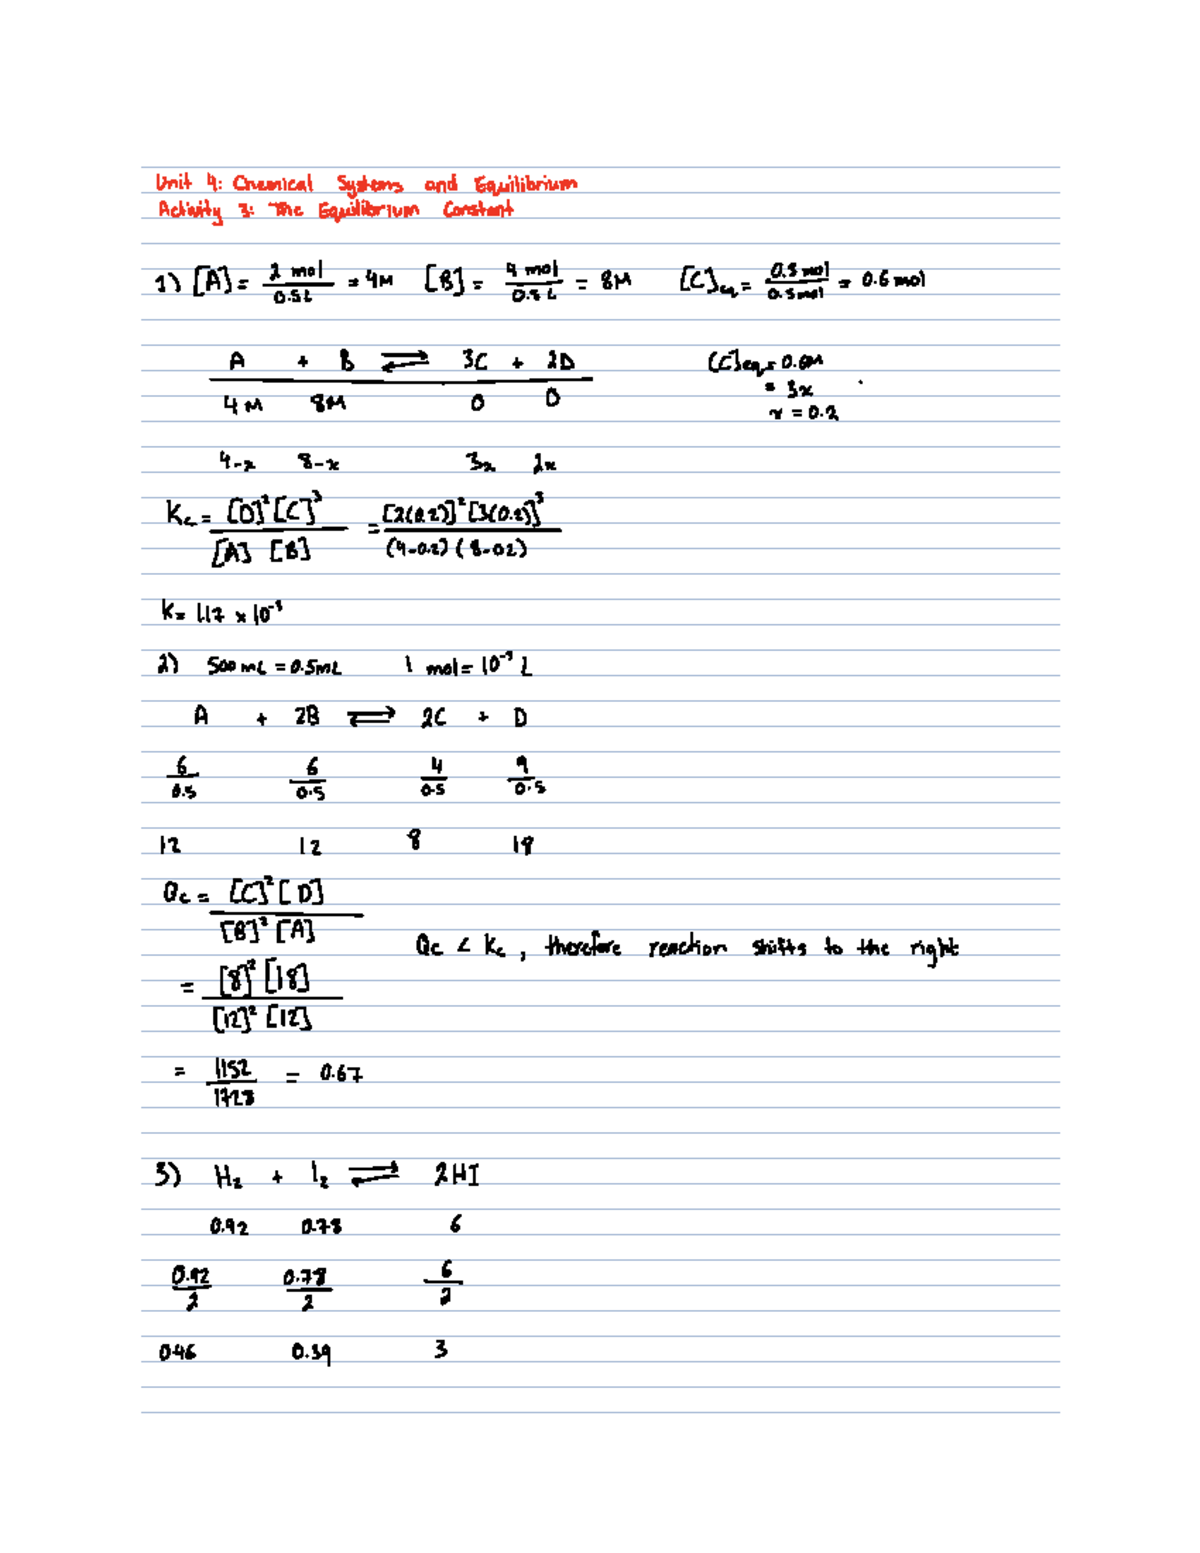 Unit 4: Chemical Systems and Equilibrium
Activity 3: The Equilibrium Constant
1) [A] = 2 mol / 0.5L = 4M [B] = 4 mol / 0.5 L = 8M [C]eq = 0.3 mol / 0.5 mol = 0.6 mol
A + B ⇌ 3C + 2D [C]eq = 0.6M
= 3x
4M 8M 0 0 x = 0.2
4-x 8-x 3x 2x
Kc = [D]²[C]³ / [A] [B] = [2(0.2)]² [3(0.2)]³ / (4-0.2) (8-0.2)
K = 1.17 x 10⁻³
2) 500 mL = 0.5mL 1 mol = 10⁻³ L
A + 2B ⇌ 2C + D
6/0.5 6/0.5 4/0.5 9/0.5
12 12 8 18
Qc = [C]² [D] / [B]² [A]
Qc < Kc, therefore reaction shifts to the right
= [8]² [18] / [12]² [12]
= 1152 / 1728 = 0.67
3) H₂ + I₂ ⇌ 2HI
0.92 0.78 6
0.92/2 0.78/2 6/2
0.46 0.39 3